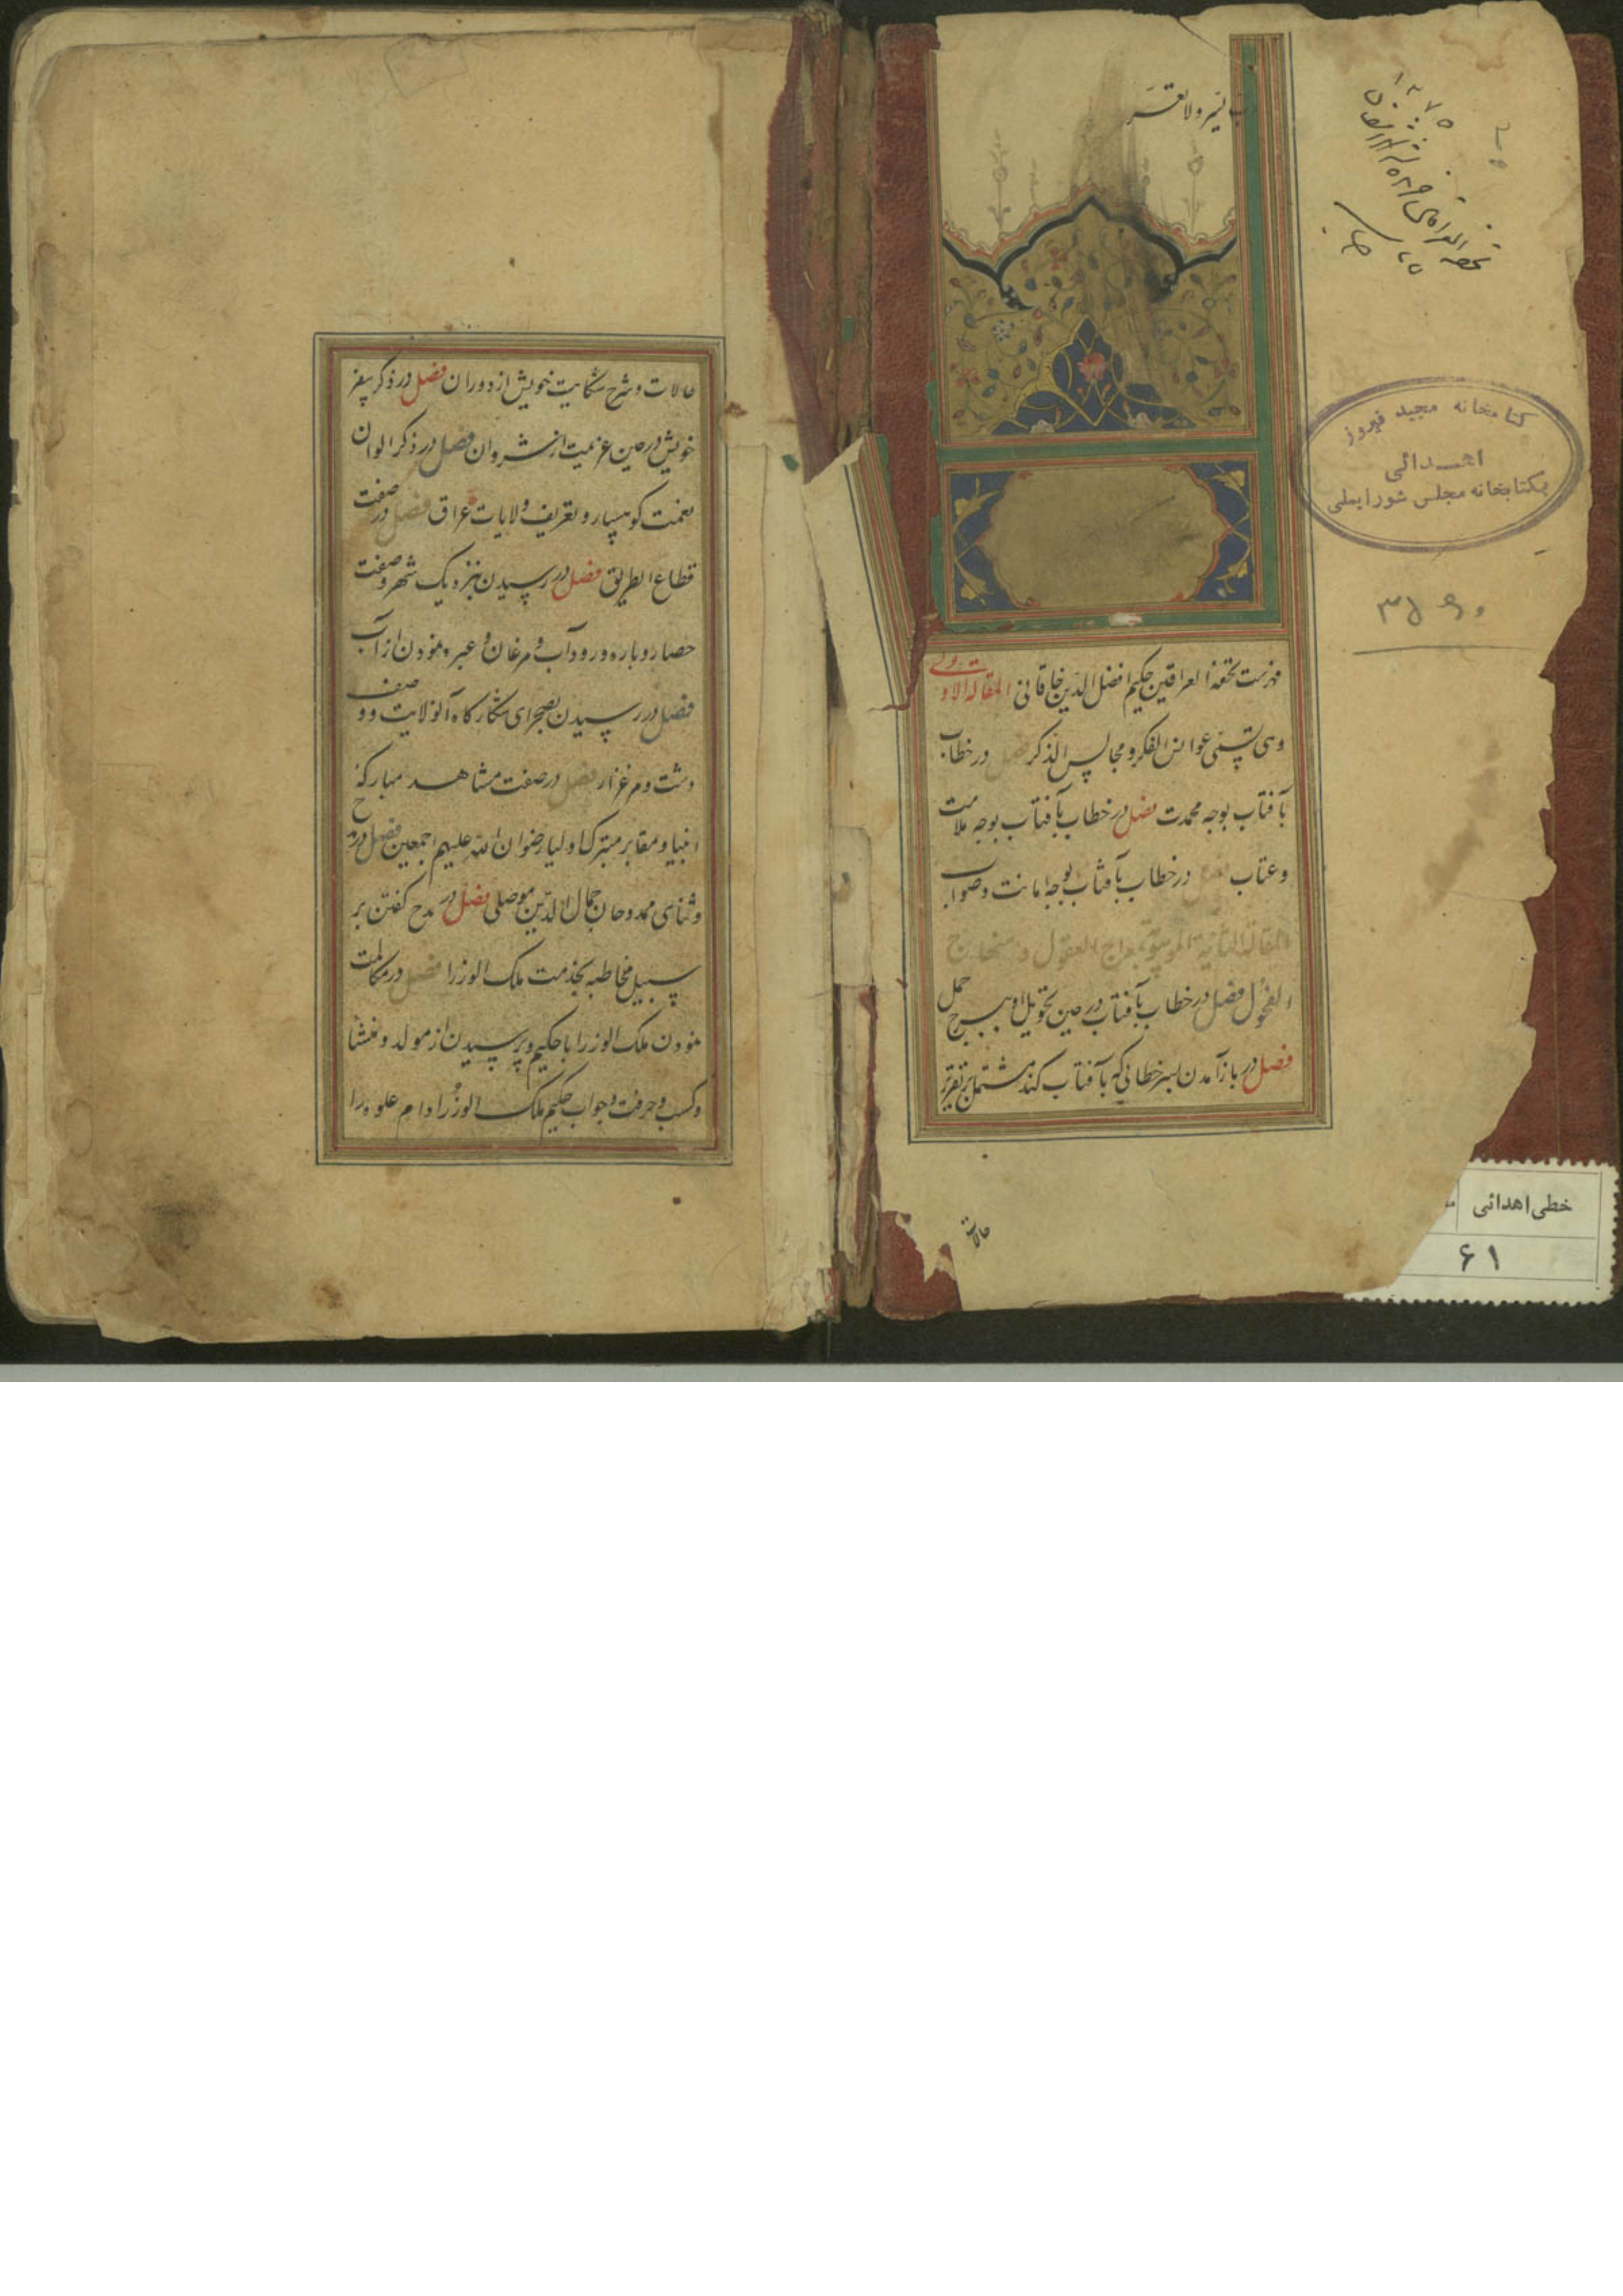 رب یسر ولا تعسر
۱۲۷۵
کتابخانه مجید فیروز
اهدائی
بکتابخانه مجلس شورایملی
فهرست تحفة العراقین حکیم افضل الدین خاقانی المقالة الاولی
وهی تسمی عرائس الفکر و مجالس الذکر فصل در خطاب
بآفتاب بوجه محمدت فصل در خطاب بآفتاب بوجه ملامت
وعتاب فصل در خطاب بآفتاب بوجه امانت وصواب
المقالة الثانیة الموسومة بمعراج العقول و منهاج
الفحول فصل در خطاب بآفتاب در حین تحویل او ببرج حمل
فصل در باز آمدن بسر خطابی که بآفتاب کند مشتمل بر تقریر
حالات
خطی اهدائی
۶۱
حالات و شرح شکایت خویش از دوران فصل در ذکر سفر
خویش در حین عزیمت از شروان فصل در ذکر الوان
نعمت کوهسار و تعریف ولایات عراق فصل در صفت
قطاع الطریق فصل در رسیدن بنزدیک شهر وصفت
حصار و باره و رود آب و مرغان و عبره نمودن از آب
فصل در رسیدن بصحرای شکارگاه آنولایت و وصف
دشت و مرغزار فصل در صفت مشاهد مبارکهٔ
انبیا و مقابر متبرک اولیا رضوان الله علیهم اجمعین فصل در مدح
و ثنای ممدوحان جمال الدین موصلی فصل در مدح گفتن بر
سبیل مخاطبه بخدمت ملک الوزرا فصل در مکالمت
نمودن ملک الوزرا با حکیم و پرسیدن از مولد و منشا
و کسب و حرفت و جواب حکیم ملک الوزرا دام علوه را